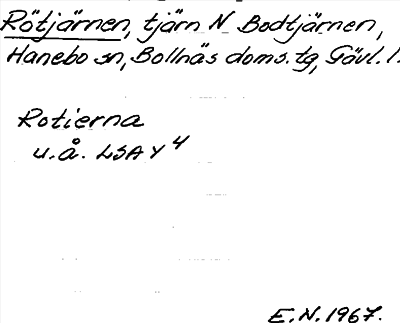 Rötjärnen, tjärn N Bodtjärnen,
Hanebo sn, Bollnäs doms. tg, Gävl. l.
Rotierna
u.å. LSA Y 4
E.N. 1967.